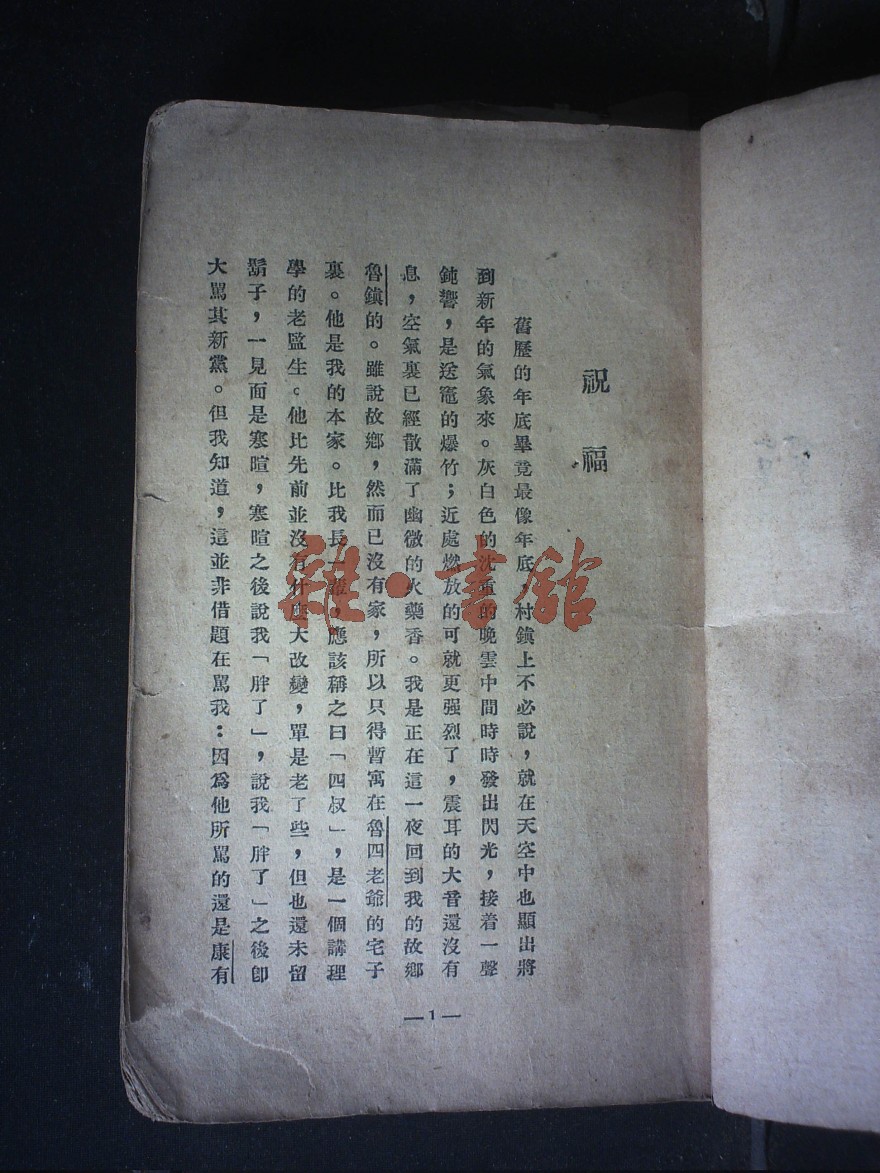 祝福
舊歷的年底畢竟最像年底，村鎭上不必說，就在天空中也顯出將
到新年的氣象來。灰白色的沈重的晚雲中間時時發出閃光，接着一聲
鈍響，是送竈的爆竹；近處燃放的可就更强烈了，震耳的大音還沒有
息，空氣裏已經散滿了幽微的火藥香。我是正在這一夜回到我的故鄉
魯鎭的。雖說故鄉，然而已沒有家，所以只得暫寓在魯四老爺的宅子
裏。他是我的本家。比我長一輩，應該稱之曰「四叔」，是一個講理
學的老監生。他比先前並沒有什麼大改變，單是老了些，但也還未留
鬍子，一見面是寒暄，寒暄之後說我「胖了」，說我「胖了」之後卽
大罵其新黨。但我知道，這並非借題在罵我：因爲他所罵的還是康有
—1—
雜·書館